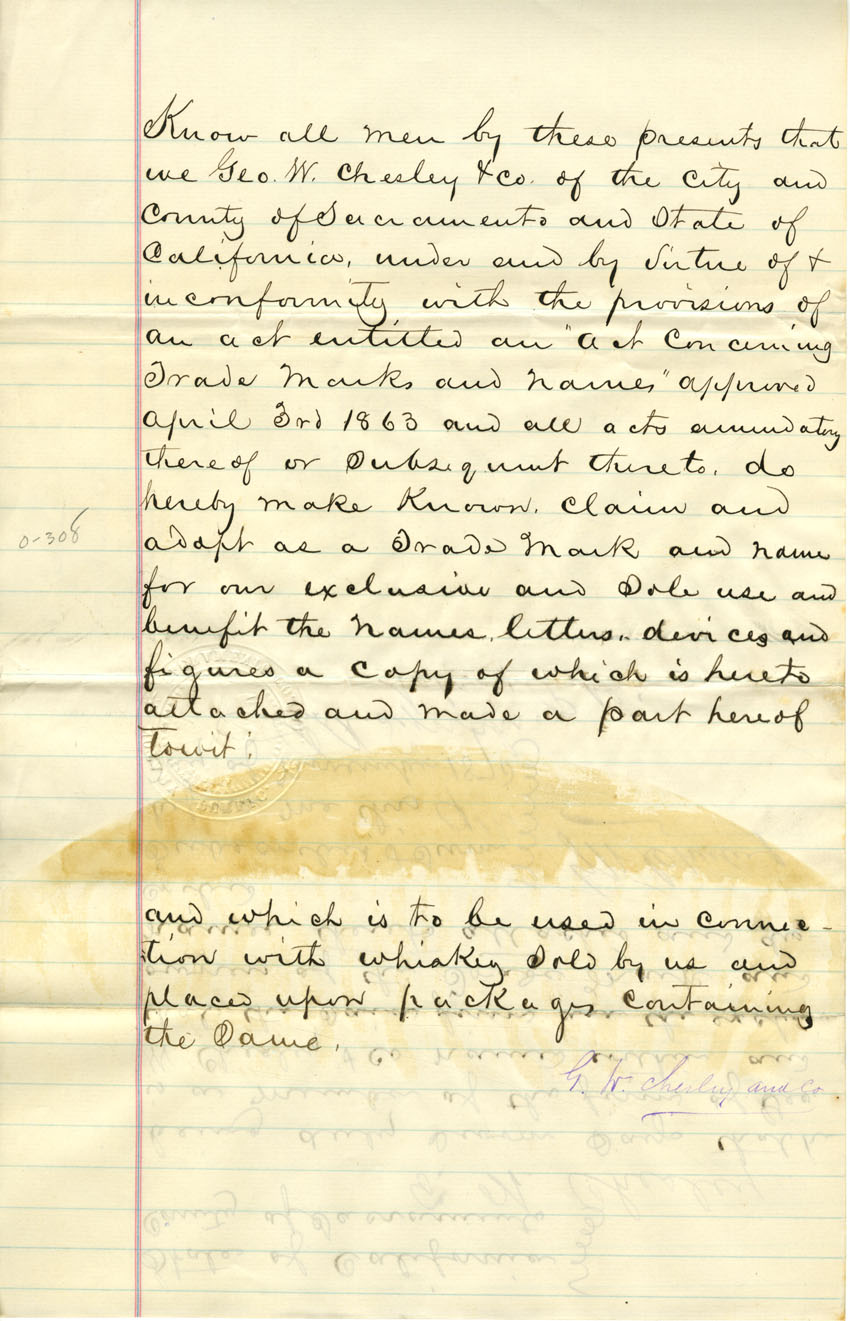 Know all men by these presents that
we Geo. W. Chesley & co. of the city and
County of Sacramento and State of
California, under and by virtue of &
in conformity with the provisions of
an act entitled an "act Concerning
Trade Marks and names" approved
April 3rd 1863 and all acts amendatory
thereof or Subsequent thereto, do
hereby make Known, claim and
0-308
adopt as a Trade Mark and name
for our exclusive and Sole use and
benefit the names, letters, devices and
figures a copy of which is hereto
attached and made a part hereof
Towit:
and which is to be used in connec-
tion with whiskey Sold by us and
placed upon packages containing
the Same.
G. W. Chesley and Co